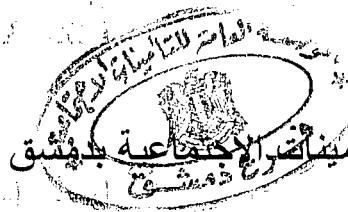 المؤسسة العامة للتأمينات الاجتماعية
فرع دمشق
الاجتماعية بدمشق